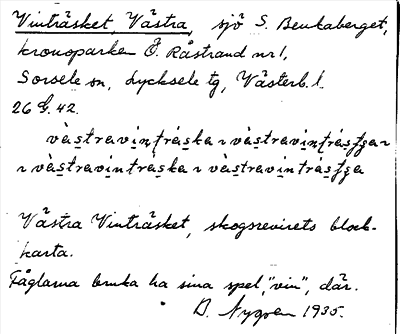 Vinträsket, Västra, sjö S. Benkaberget,
kronoparken Ö. Råstrand nr 1,
Sorsele sn, Lycksele tg, Västerb. l.
26 G. 42.
vàstravinträska ~ vàstravinträsṭga ~
~ vàstravinträska ~ vàstravinträsṭga
Västra Vinträsket, skogsrevirets block-
karta.
Fåglarna bruka ha sina spel, "vin", där.
B. Nygren 1935.